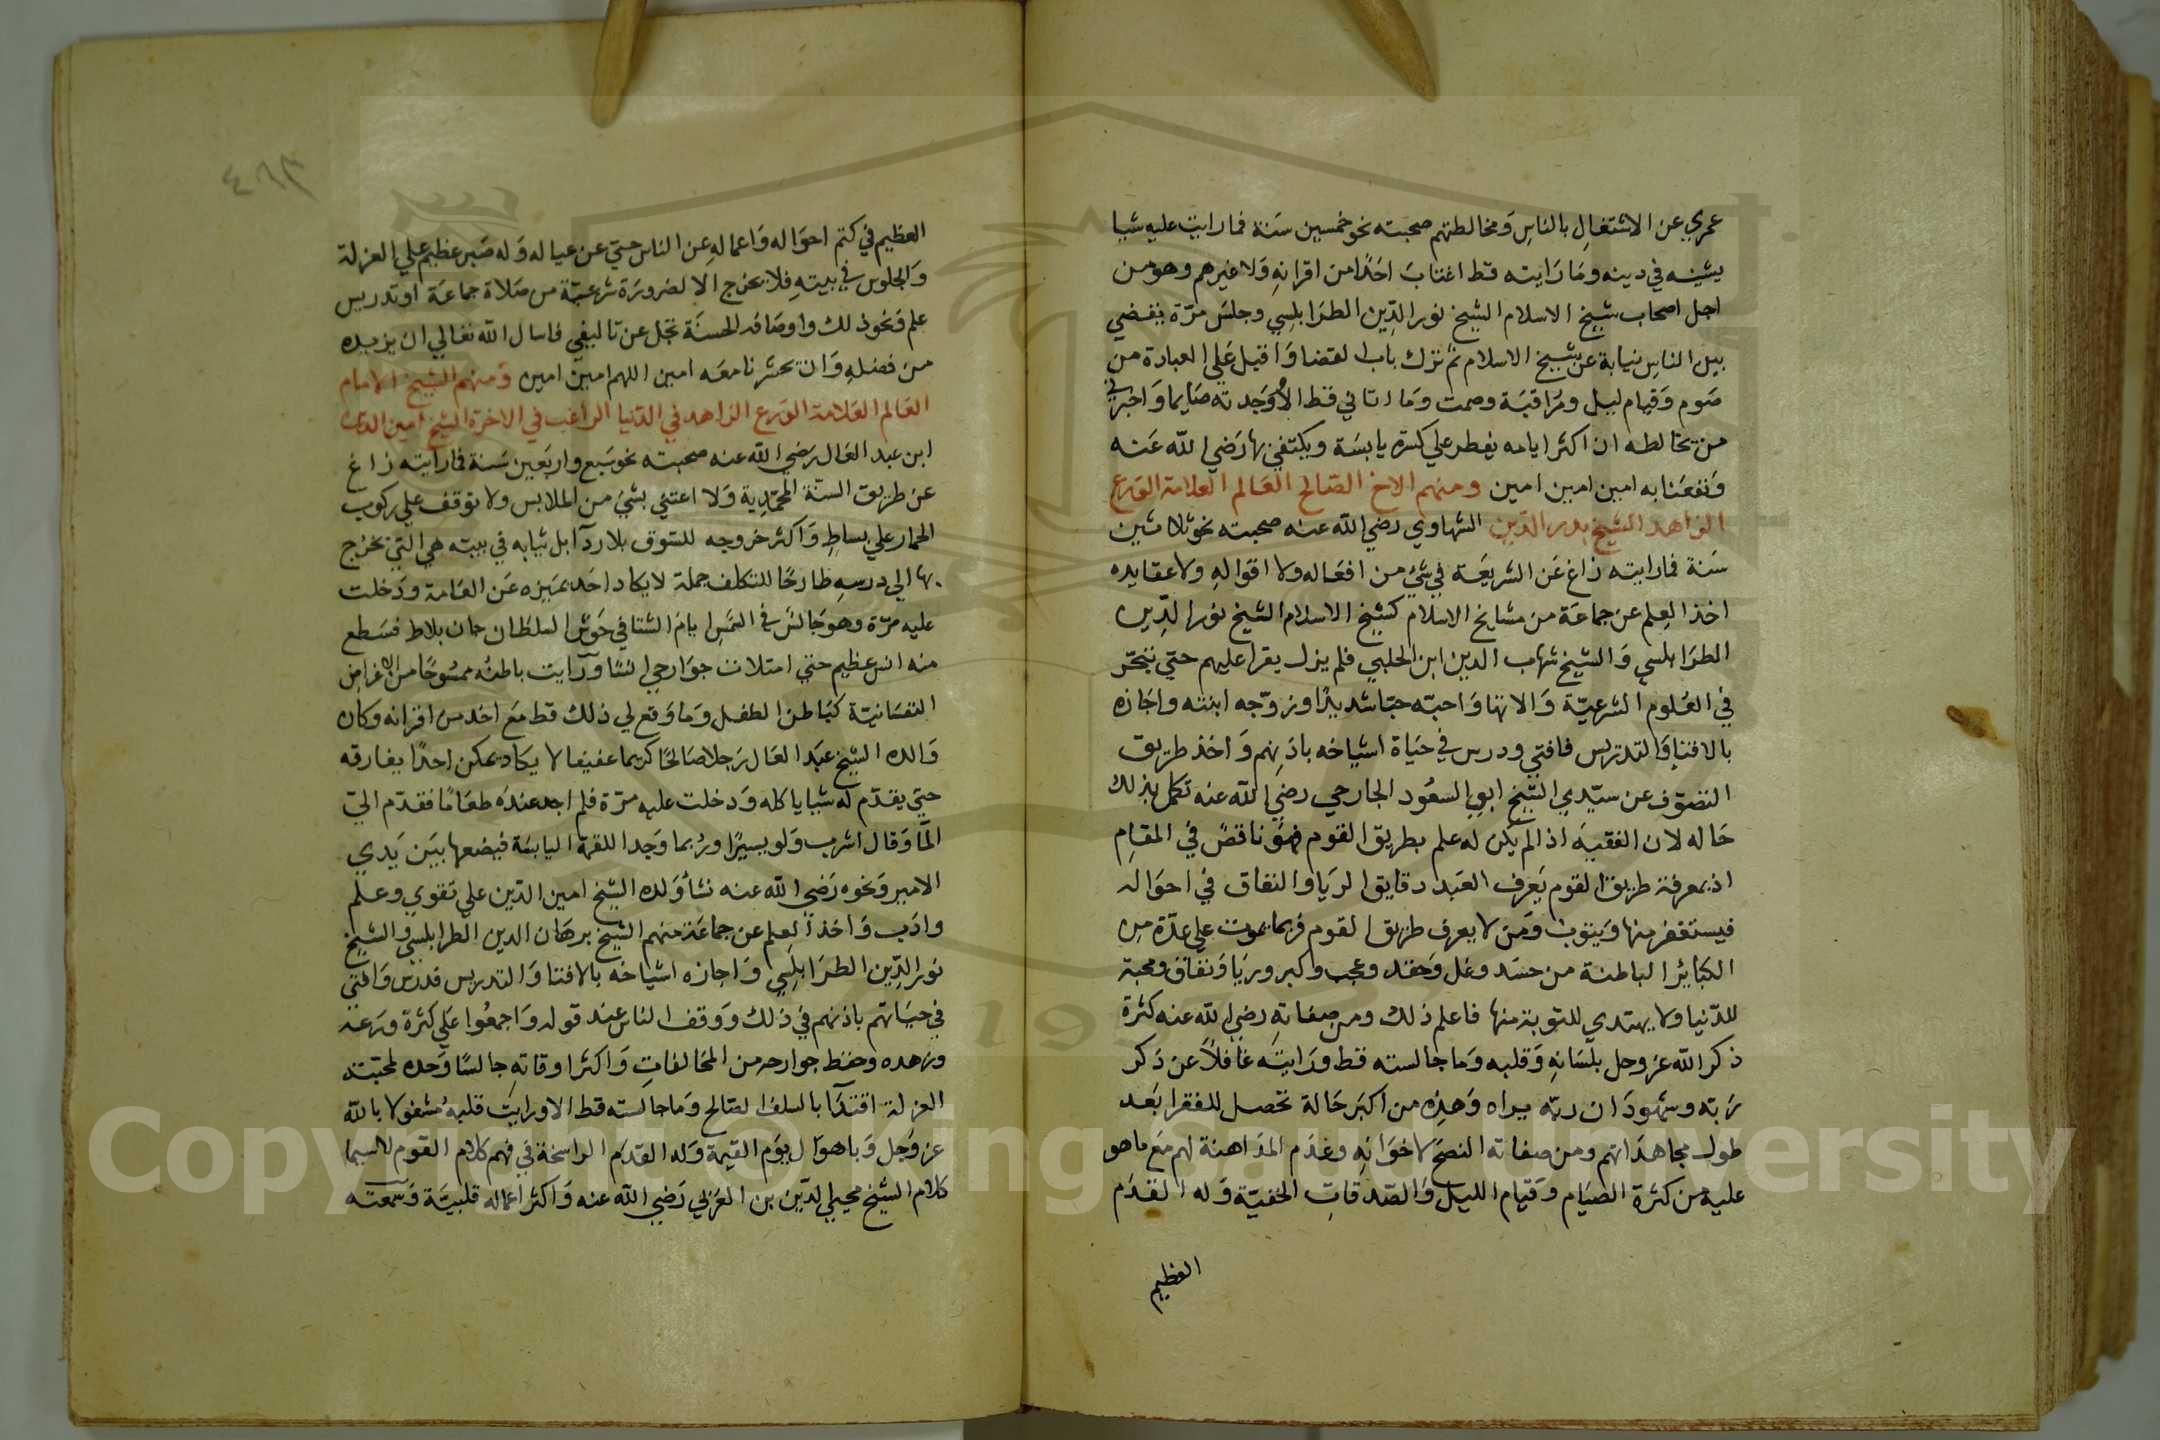 عمري عن الاشتغال بالناس ومخالطتهم صحبته نحو خمسين سنة فما رايت عليه شيا
يشينه في دينه وما رايته قط اغتاب احدا من اقرانه ولا غيرهم وهو من
اجل اصحاب شيخ الاسلام الشيخ نور الدين الطرابلسي وجلس مرة يقضي
بين الناس نيابة عن شيخ الاسلام ثم ترك باب القضا واقبل علي العبادة من
صوم وقيام ليل ومراقبة وصمت وما اتاني قط الا وجدته صايما واخبرني
من خالطه ان اكثر ايامه يفطر علي كسرة يابسة ويكتفي بها رضي الله عنه
ونفعنا به امين امين امين ومنهم الاخ الصالح العالم العلامة الورع
الزاهد الشيخ بدر الدين الشهاوي رضي الله عنه صحبته نحو ثلاثين
سنة فما رايته زاغ عن الشريعة في شيء من افعاله ولا اقواله ولا عقايده
اخذ العلم عن جماعة من مشايخ الاسلام كشيخ الاسلام الشيخ نور الدين
الطرابلسي والشيخ شهاب الدين ابن الحلبي فلم يزل يقرا عليهم حتي تبحر
في العلوم الشرعية والاتها واحبه حبا شديدا وزوجه ابنته واجازه
بالافتا والتدريس فافتي ودرس في حياة اشياخه باذنهم واخذ طريق
التصوف عن سيدي الشيخ ابو السعود الجارحي رضي الله عنه تكمل بذلك
حاله لان الفقيه اذا لم يكن له علم بطريق القوم فهو ناقص في المقام
اذ بمعرفة طريق القوم يعرف العبد دقايق الريا والنفاق في احواله
فيستغفر منها ويتوب ومن لا يعرف طريق القوم فربما يموت علي عدة من
الكباير الباطنة من حسد وغل وحقد وعجب وكبر وريا ونفاق ومحبة
للدنيا ولا يهتدي للتوبة منها فاعلم ذلك ومن صفاته رضي الله عنه كثرة
ذكر الله عز وجل بلسانه وقلبه وما جالسته قط ورايته غافلا عن ذكر
ربه وشهود ان ربه يراه وهذه من اكبر حالة تحصل للفقرا بعد
طول مجاهداتهم ومن صفاته النصح لاخوانه وعدم المداهنة لهم مع ما هو
عليه من كثرة الصيام وقيام الليل والصدقات الخفية وله القدم
العظيم
٤٦٣
العظيم في كتم احواله واعماله عن الناس حتي عن عياله وله صبر عظيم علي العزلة
والجلوس في بيته فلا يخرج الا لضرورة شرعية من صلاة جماعة او تدريس
علم ونحو ذلك واوصافه الحسنة تجل عن تاليفي فاسال الله تعالي ان يزيده
من فضله وان يحشرنا معه امين اللهم امين امين ومنهم الشيخ الامام
العالم العلامة الورع الزاهد في الدنيا الراغب في الاخرة الشيخ امين الدين
ابن عبد العال رضي الله عنه صحبته نحو سبع واربعين سنة فما رايته زاغ
عن طريق السنة المحمدية ولا اعتني بشي من الملابس ولا توقف علي ركوب
الحمار علي بساط واكثر خروجه للسوق بلا ردآ بل ثيابه في بيته هي التي يخرج
بها الي درسه طارحا للتكلف جملة لا يكاد احد يميزه عن العامة ودخلت
عليه مرة وهو جالس في الشمس ايام الشتا في حوش السلطان جان بلاط فسطع
منه انس عظيم حتي امتلات جوارحي انسا ورايت باطنه ممسوحا من الاغراض
النفسانية كباطن الطفل وما وقع لي ذلك قط مع احد من اقرانه وكان
والده الشيخ عبد العال رجلا صالحا كريما عفيفا لا يكاد يمكن احدا يفارقه
حتي يقدم له شيا ياكله ودخلت عليه مرة فلم اجد عنده طعاما فقدم الي
المآ وقال اشرب ولو يسيرا وربما وجد اللقمة اليابسة فيضعها بين يدي
الامير ونحوه رضي الله عنه نشأ ولده الشيخ امين الدين علي تقوي وعلم
وادب واخذ العلم عن جماعة منهم الشيخ برهان الدين الطرابلسي والشيخ
نور الدين الطرابلسي واجازه اشياخه بالافتا والتدريس فدرس وافتي
في حياتهم باذنهم في ذلك ووقف الناس عند قوله واجمعوا علي كثرة ورعه
وزهده وحفظ جوارحه من المخالفات واكثر اوقاته جالسا وحده لمحبته
العزلة اقتدآ بالسلف الصالح وما جالسته قط الا ورايت قلبه مشغولا بالله
عز وجل وباهوال يوم القيمة وله القدم الراسخة في فهم كلام القوم لا سيما
كلام الشيخ محيي الدين بن العربي رضي الله عنه واكثر اعماله قلبية وسمعته
Copyright © King Saud University